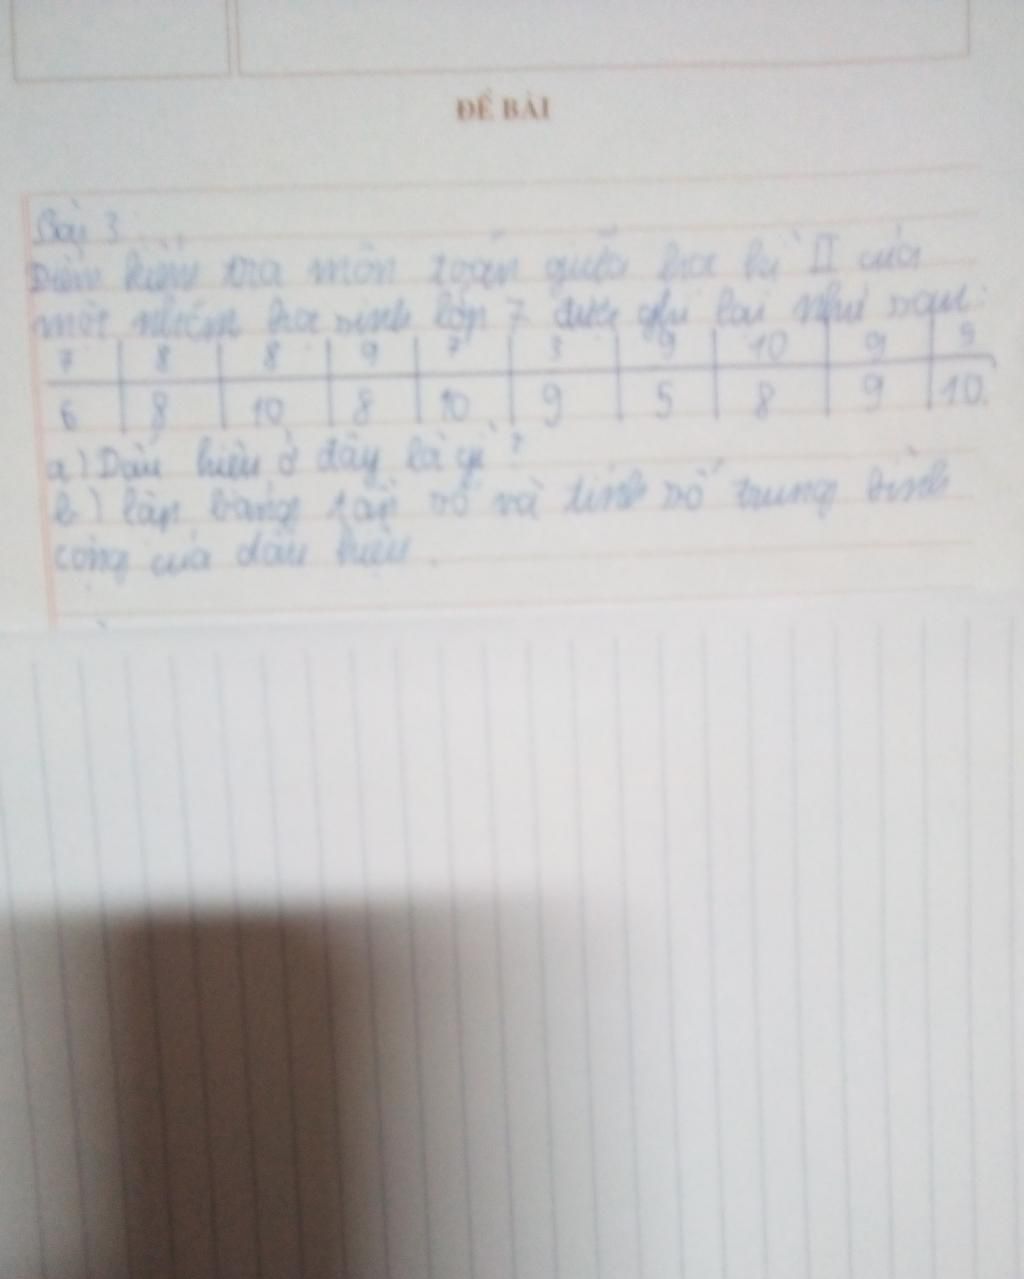 ĐỀ BÀI
Bài 3
Điểm kiểm tra môn toán giữa học kì II của
một nhóm học sinh lớp 7 được ghi lại như sau:
7 8 8 9 7 3 9 10 9
6 8 10 8 10 9 5 8 9 10
a) Dấu hiệu ở đây là gì?
b) lập bảng tần số và tính số trung bình
cộng của dấu hiệu.